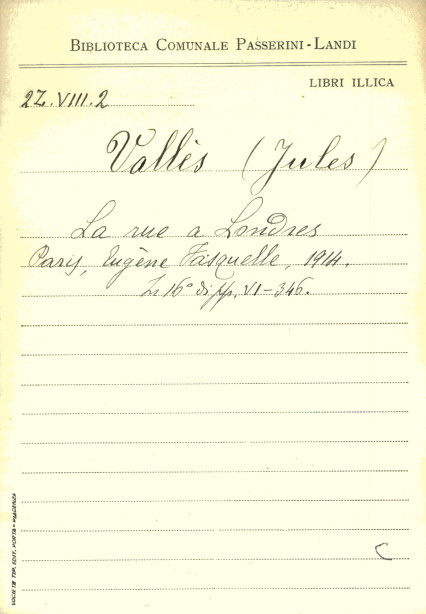 BIBLIOTECA COMUNALE PASSERINI-LANDI
LIBRI ILLICA
2Z.VIII.2
Vallès (Jules)
La rue a Londres
Paris, Eugène Fasquelle, 1914.
In 16° di pp. VI-346.
SOCIETÀ TIP. EDIT. PORTA - PIACENZA